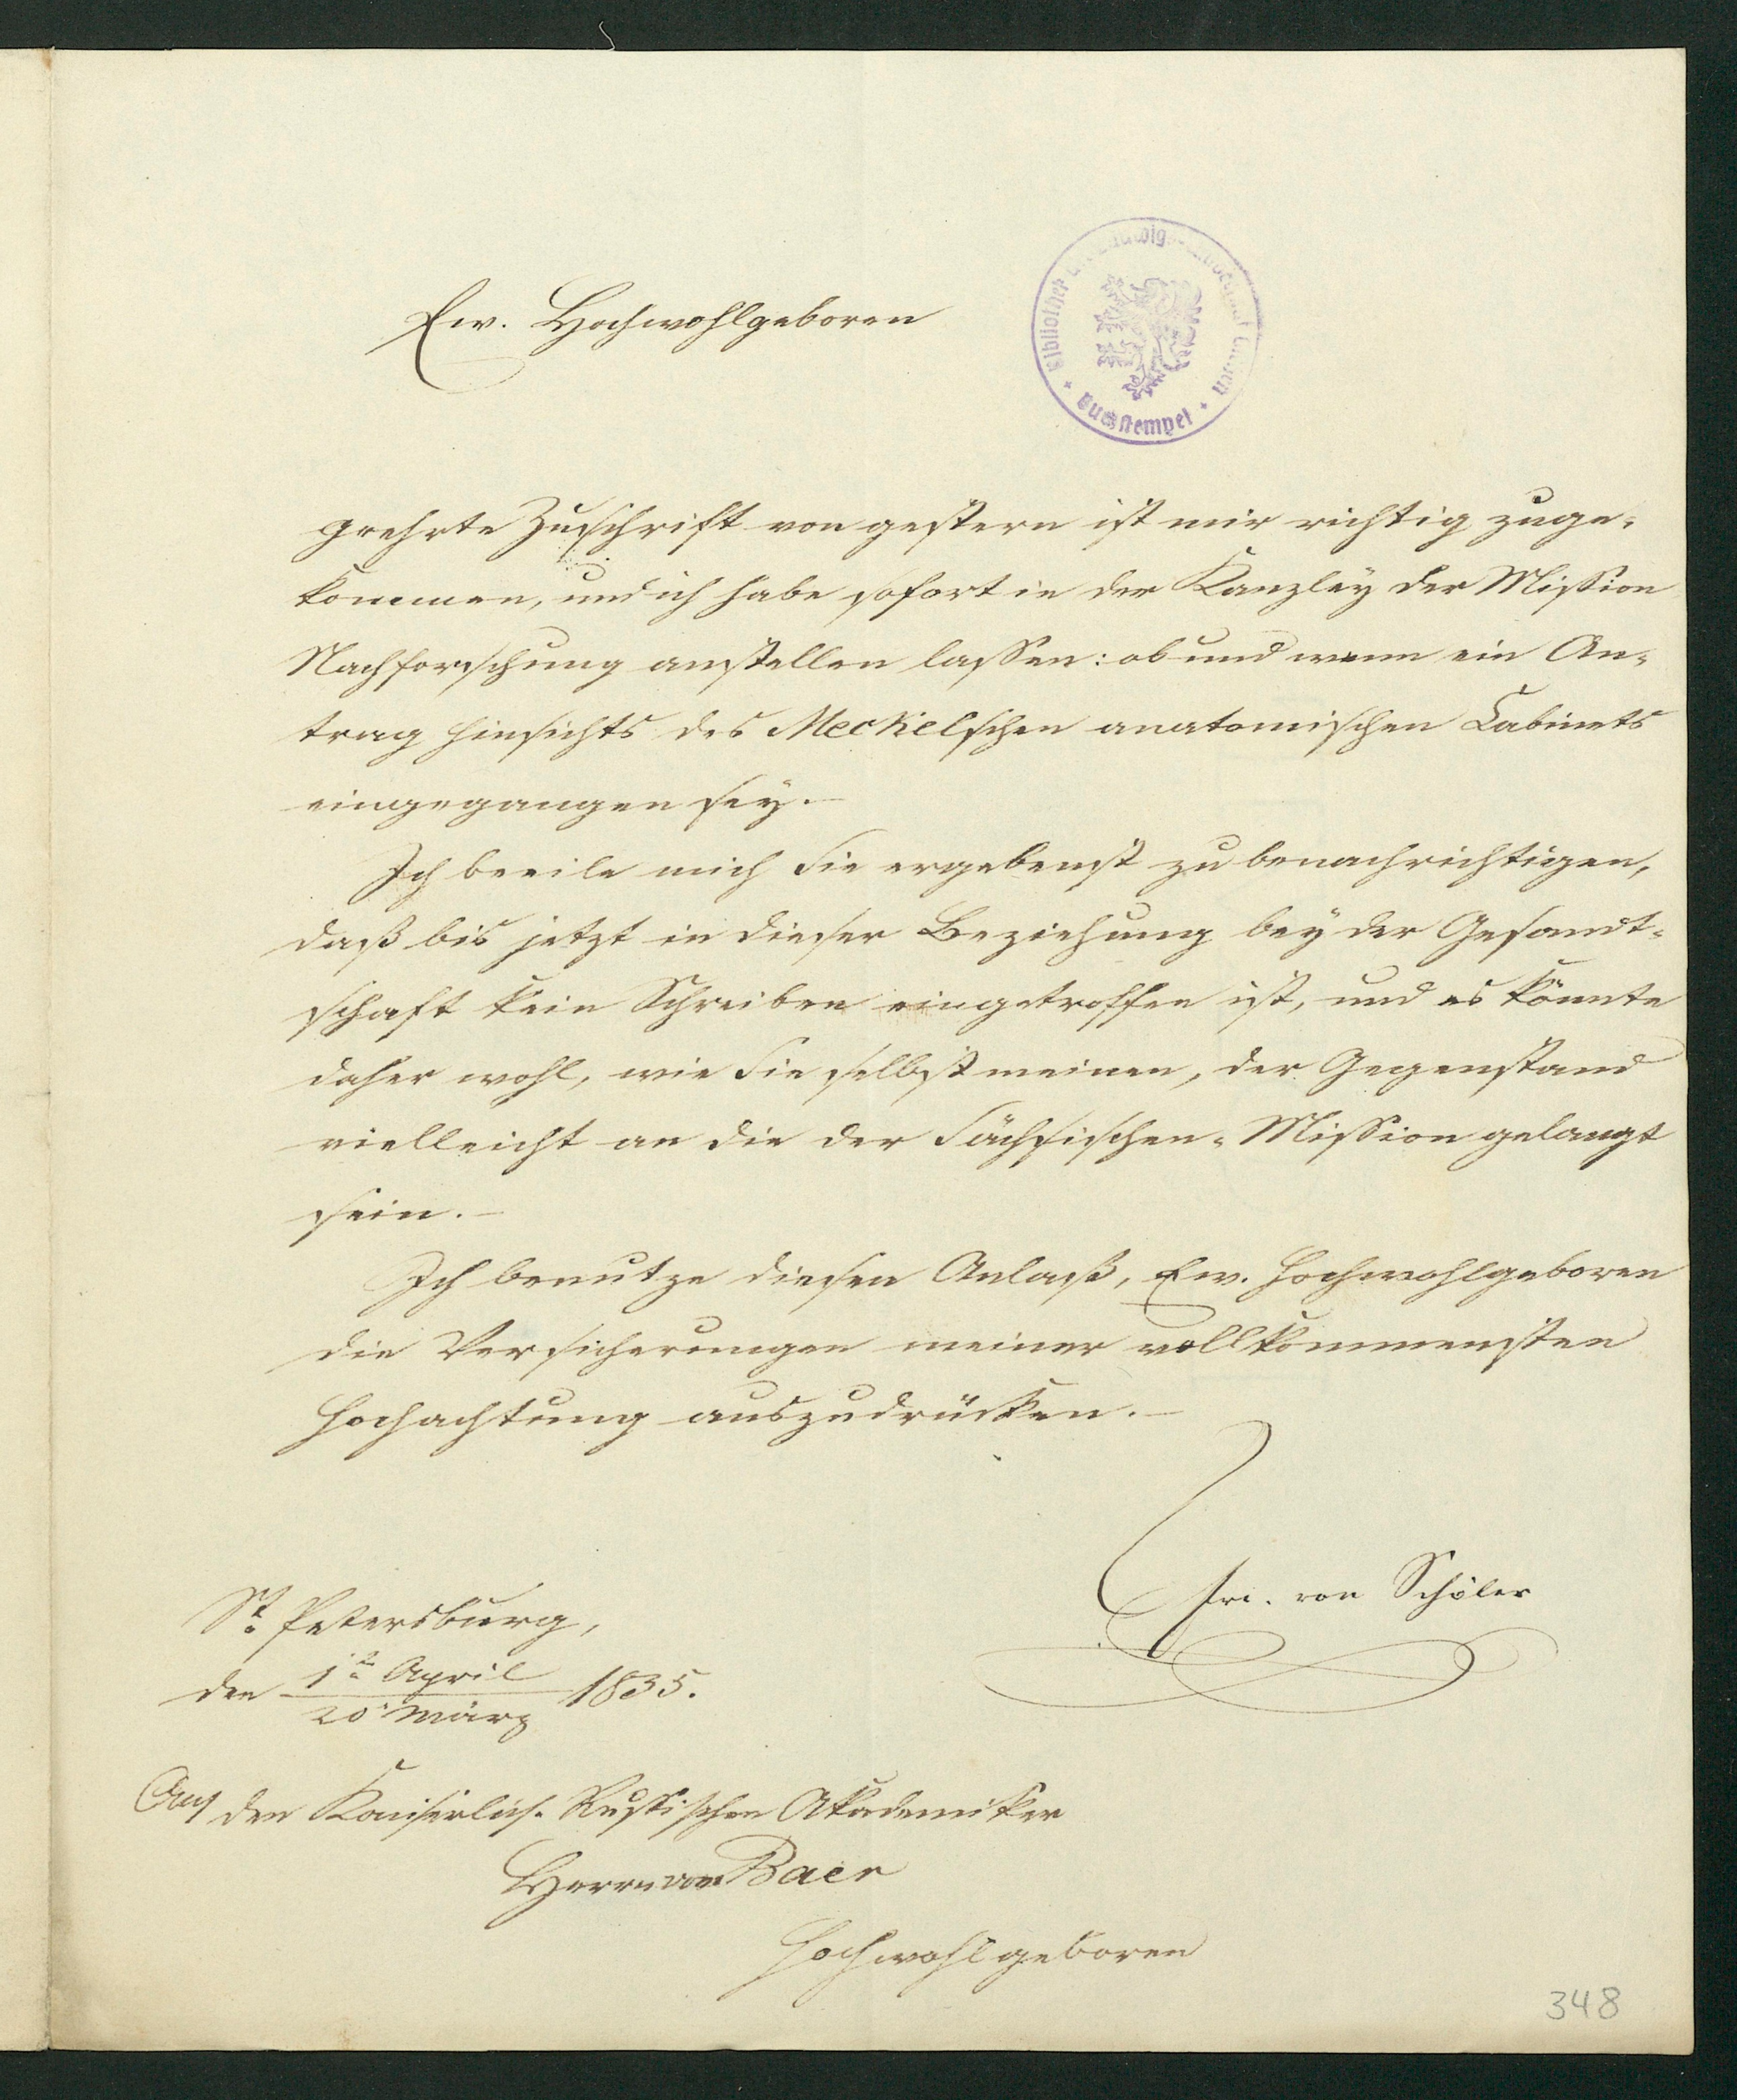 Ew. Hochwohlgeboren
Bibliothek Ludwigs
Buchstempel
geehrte Zuschrift von gestern ist mir richtig zuge-
kommen, und ich habe sofort in der Kanzley der Mission
Nachforschung anstellen lassen: ob und wenn ein An-
trag hinsichts des Meckelschen anatomischen Cabinets
eingegangen sey.-
Ich beeile mich Sie ergebenst zu benachrichtigen,
daß bis jetzt in dieser Beziehung bey der Gesandt-
schaft kein Schreiben eingetroffen ist, und es könnte
daher wohl, wie Sie selbst meinen, der Gegenstand
vielleicht an die der Sächsischen-Mission gelangt
sein.-
Ich benutze diesen Anlaß, Ew. Hochwohlgeboren
die Versicherungen meiner vollkommensten
Hochachtung auszudrücken.-
von Schöler
St. Petersburg,
den 1n April
20 März 1835.
An den Kaiserlich-Russischen Akademiker
Herrn von Baer
Hochwohlgeboren
348